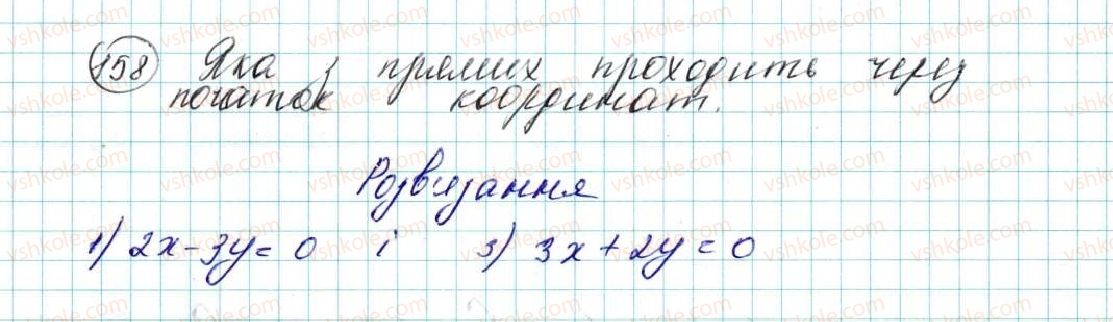 158 Яка з прямих проходить через
початок координат.
Розв'язання
1) 2x - 3y = 0 і 3) 3x + 2y = 0